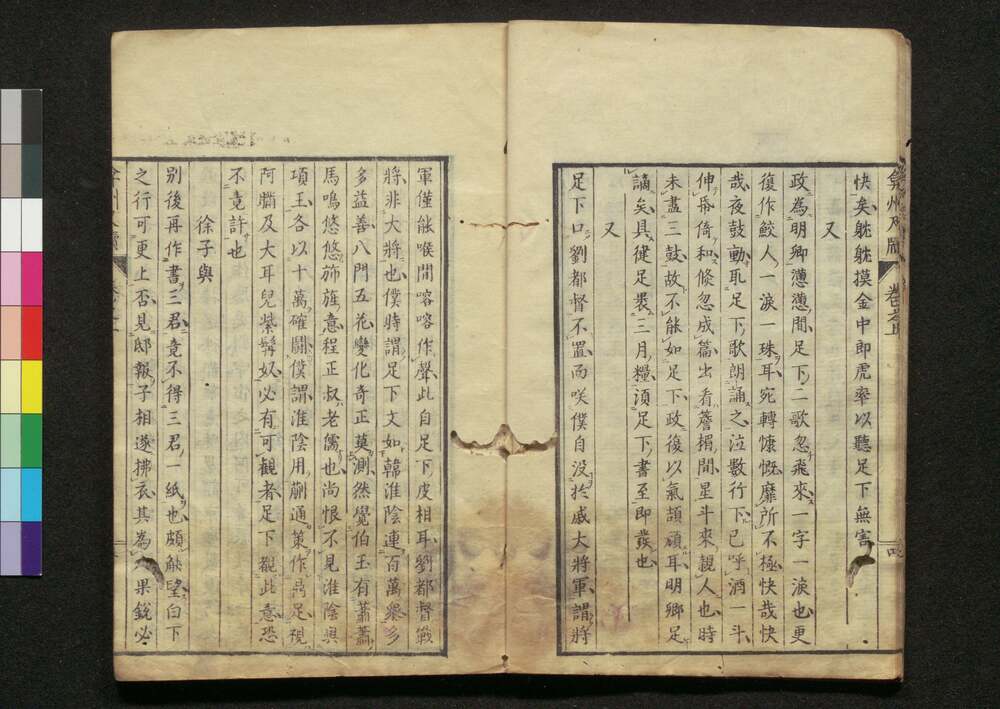 弇州尺牘
卷之
快矣躭躭摸金中郎虎率以聽足下無害
又
政為明卿懣懣間足下二歌忽飛來一字一淚也更
復作鮫人一淚一珠耳宛轉慷慨靡所不極快哉快
哉夜鼓動耴足下歌朗誦之泣數行下已呼酒一斗
伸𠕅倚和倏忽成篇出看簷楣間星斗來親人也時
未盡三鼓故不能如足下政復以氣頡頏耳明卿足
謫矣具健足裹三月糧須足下書至即發也
又
足下口劉都督不置而咲僕自没於戚大將軍謂將
軍僅能喉間喀喀作聲此自足下皮相耳劉都督戰
將非大將也僕時謂足下文如韓淮陰連百萬衆多
多益善八門五花變化奇正莫測然覺伯玉有蕭蕭
馬鳴悠悠斾旌意程正叔老儒也尚恨不見淮陰與
項王各以十萬確鬬僕謂淮陰用蒯通策作鼎足視
阿瞞及大耳兒紫髯奴必有可觀者足下觀此意恐
不竟許也
徐子與
別後再作書三君竟不得三君一紙也頗觖望白下
之行可更上否見邸報子相遂拂衣其為果銳必